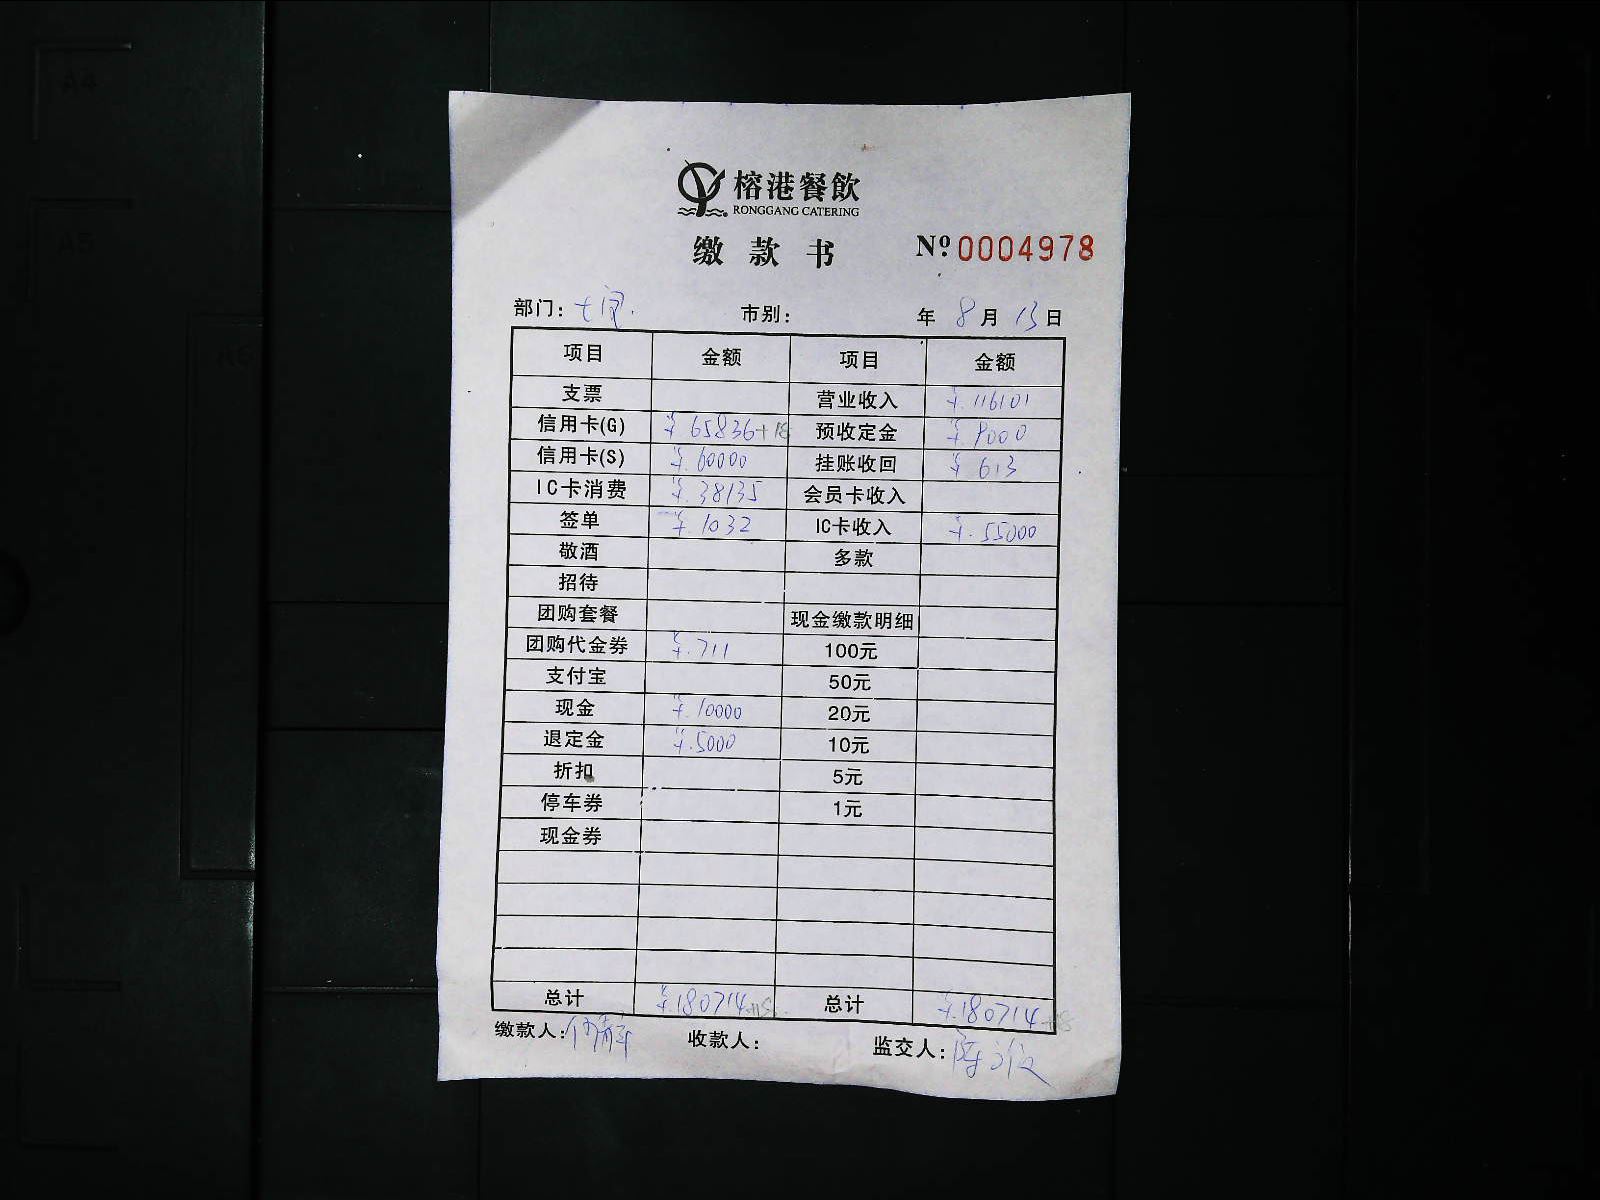 A4
A5
A3
榕港餐飲
RONGGANG CATERING
缴款书 Nº:0004978
部门: 市别: 年 8月 13日
项目 金额 项目 金额
支票 营业收入 ¥.116101
信用卡(G) ¥ 65836+18 预收定金 ¥.9000
信用卡(S) ¥.60000 挂账收回 ¥ 613
IC卡消费 ¥.38135 会员卡收入
签单 ¥.1032 IC卡收入 ¥.55000
敬酒 多款
招待
团购套餐 现金缴款明细
团购代金券 ¥.711 100元
支付宝 50元
现金 ¥.10000 20元
退定金 ¥.5000 10元
折扣 5元
停车券 1元
现金券
总计 ¥.180714+18 总计 ¥.180714+18
缴款人: 收款人: 监交人: